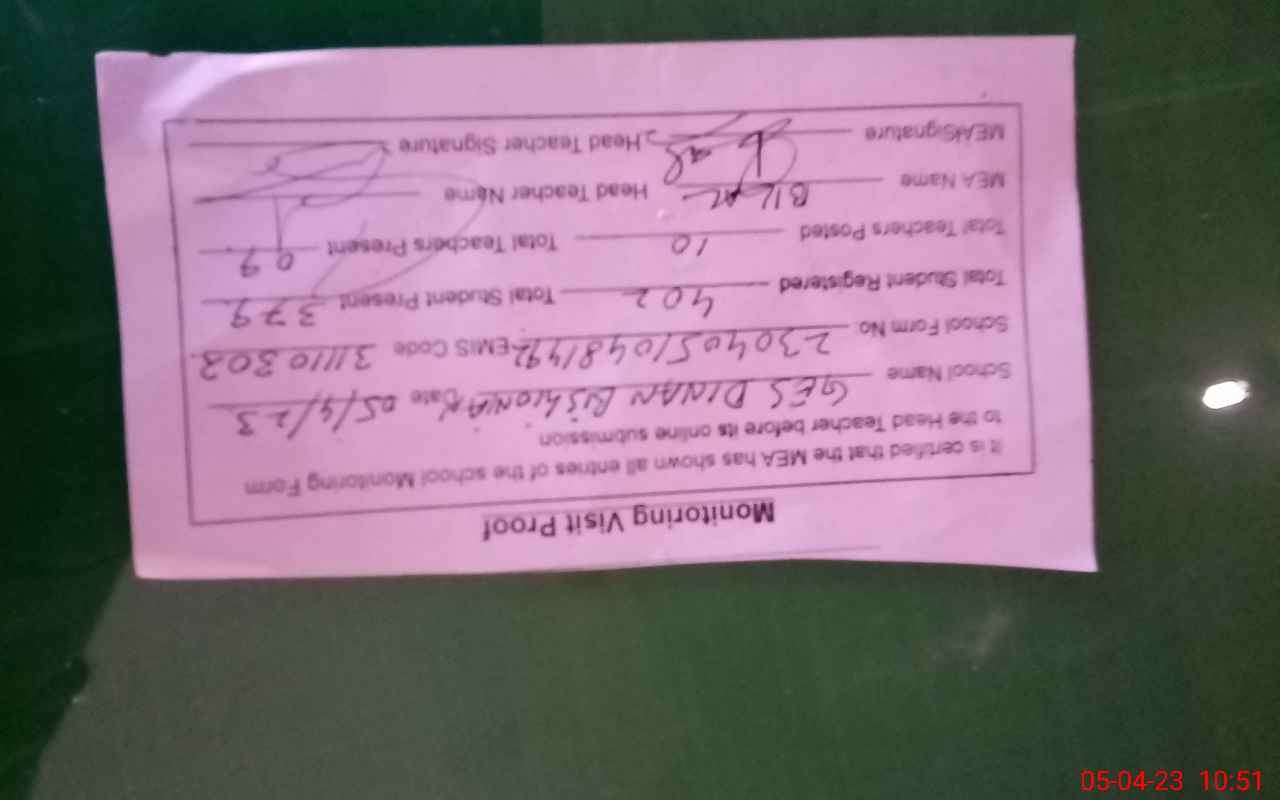 Monitoring Visit Proof
It is certified that the MEA has shown all entries of the school Monitoring Form
to the Head Teacher before its online submission
School Name GES DINAN BISHIONAN Date 05/4/23
School Form No EMIS Code 31110303
Total Student Registered 402 Total Student Present 379
Total Teachers Posted 10 Total Teachers Present 09
MEA Name Head Teacher Name
MEA Signature Head Teacher Signature
05-04-23 10:51